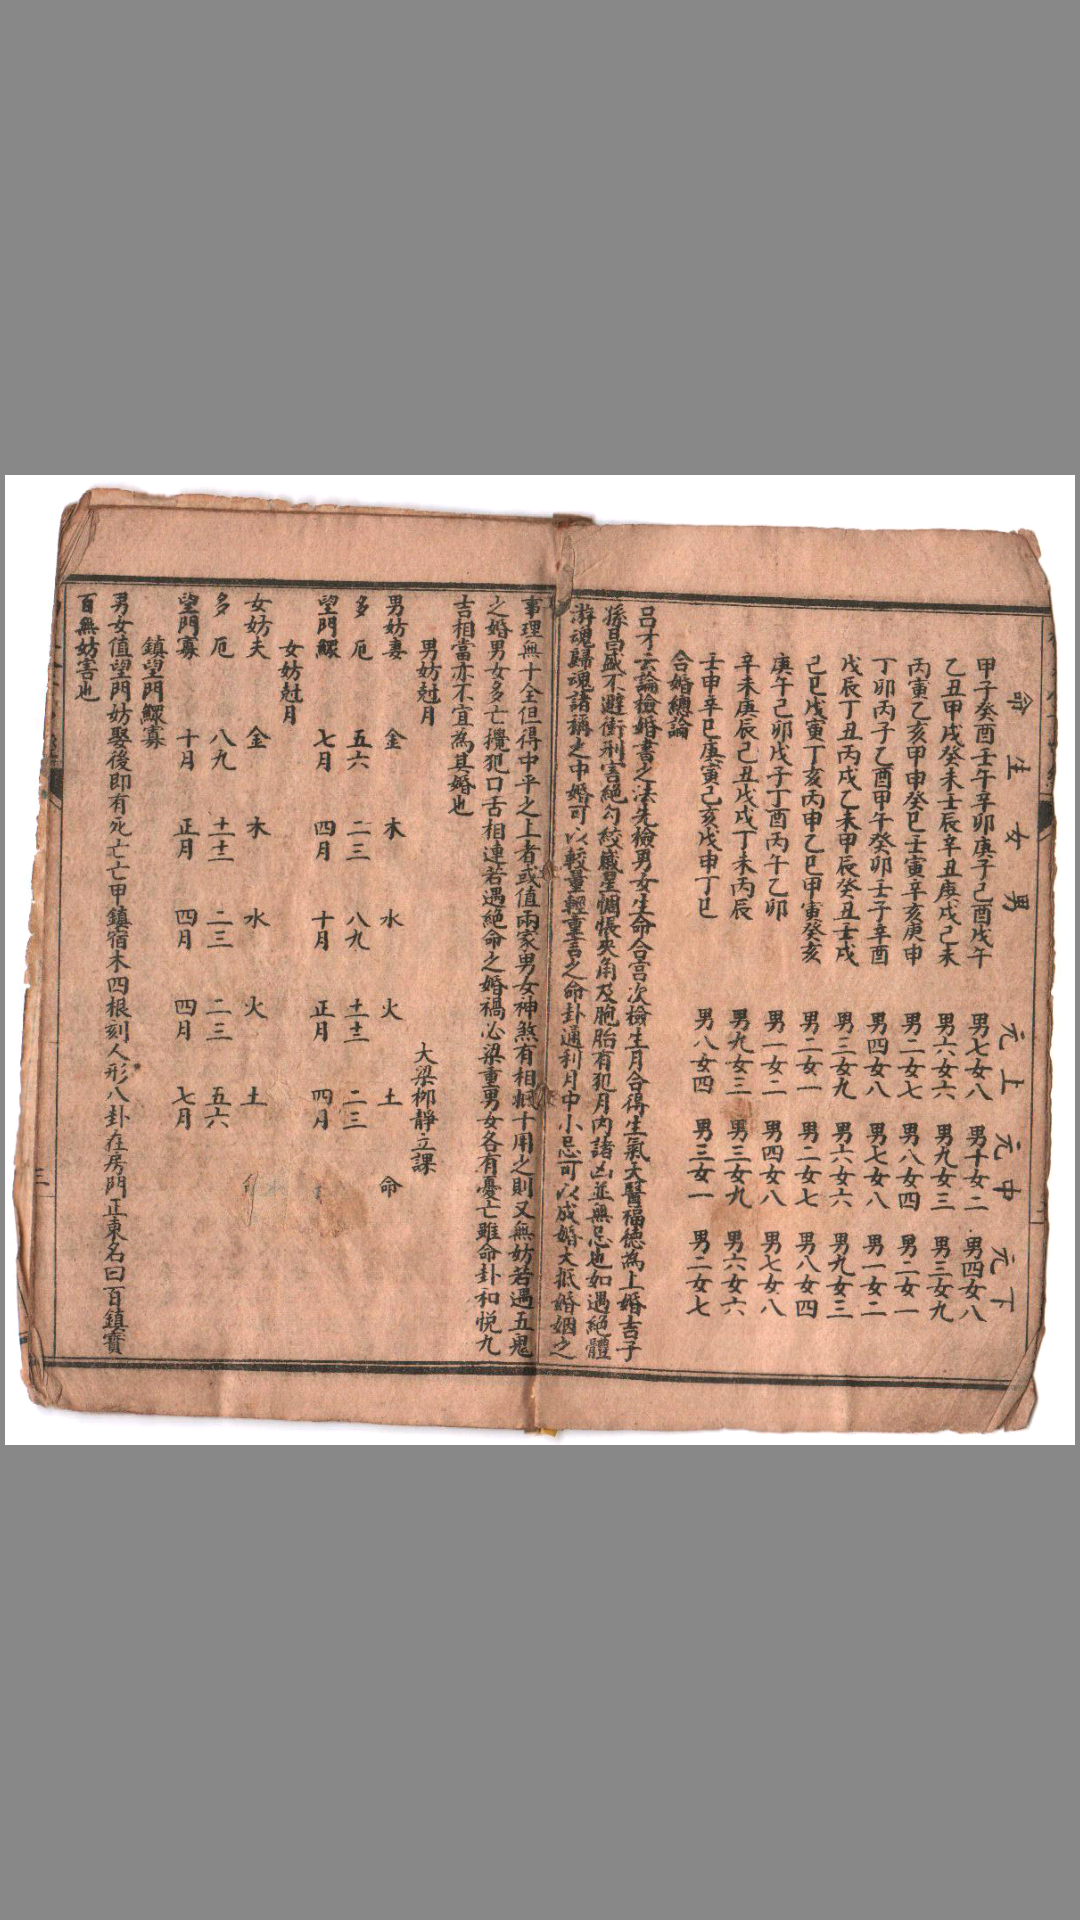 男女生命 上元 中元 下元
甲子癸酉壬午辛卯庚子己酉戊午 男七女八 男十女二 男四女八
乙丑甲戌癸未壬辰辛丑庚戌己未 男六女六 男九女三 男三女九
丙寅乙亥甲申癸巳壬寅辛亥庚申 男二女七 男八女四 男二女一
丁卯丙子乙酉甲午癸卯壬子辛酉 男四女八 男七女八 男一女二
戊辰丁丑丙戌乙未甲辰癸丑壬戌 男三女九 男六女六 男九女三
己巳戊寅丁亥丙申乙巳甲寅癸亥 男二女一 男二女七 男八女四
庚午己卯戊子丁酉丙午乙卯 男一女二 男四女八 男七女八
辛未庚辰己丑戊戌丁未丙辰 男九女三 男三女九 男六女六
壬申辛巳庚寅己亥戊申丁巳 男八女四 男三女一 男二女七
合婚總論
呂才云論檢婚書之法先檢男女生命合宮次檢生月合得生氣天醫福德為上婚吉子
孫昌盛不避衝刑害絕勾絞歲星惆悵夾角及胞胎有犯月內諸凶並無忌也如遇絕體
游魂歸魂諸稱之中婚可以較量輕重言之命卦通利月中小忌可以成婚大抵婚姻之
事理無十全但得中平之上者或值兩家男女神煞有相抵十用之則又無妨若遇五鬼
之婚男女多亡攪犯口舌相連若遇絕命之婚禍必梁重男女各有憂亡雖命卦和悅九
吉相當亦不宜為其婚也
男妨尅月 大梁柳靜立課
男妨妻 金 木 水 火 土 命
多厄 五六 二三 八九 十二 二三
望門鰥 七月 四月 十月 正月 四月
女妨尅月
女妨夫 金 木 水 火 土 命
多厄 八九 十二 二三 二三 五六
望門寡 十月 正月 四月 四月 七月
鎮望門鰥寡
男女值望門妨娶後即有死亡亡甲鎮宿木四根刻人形八卦在房門正東名曰百鎮寶
百無妨害也
三